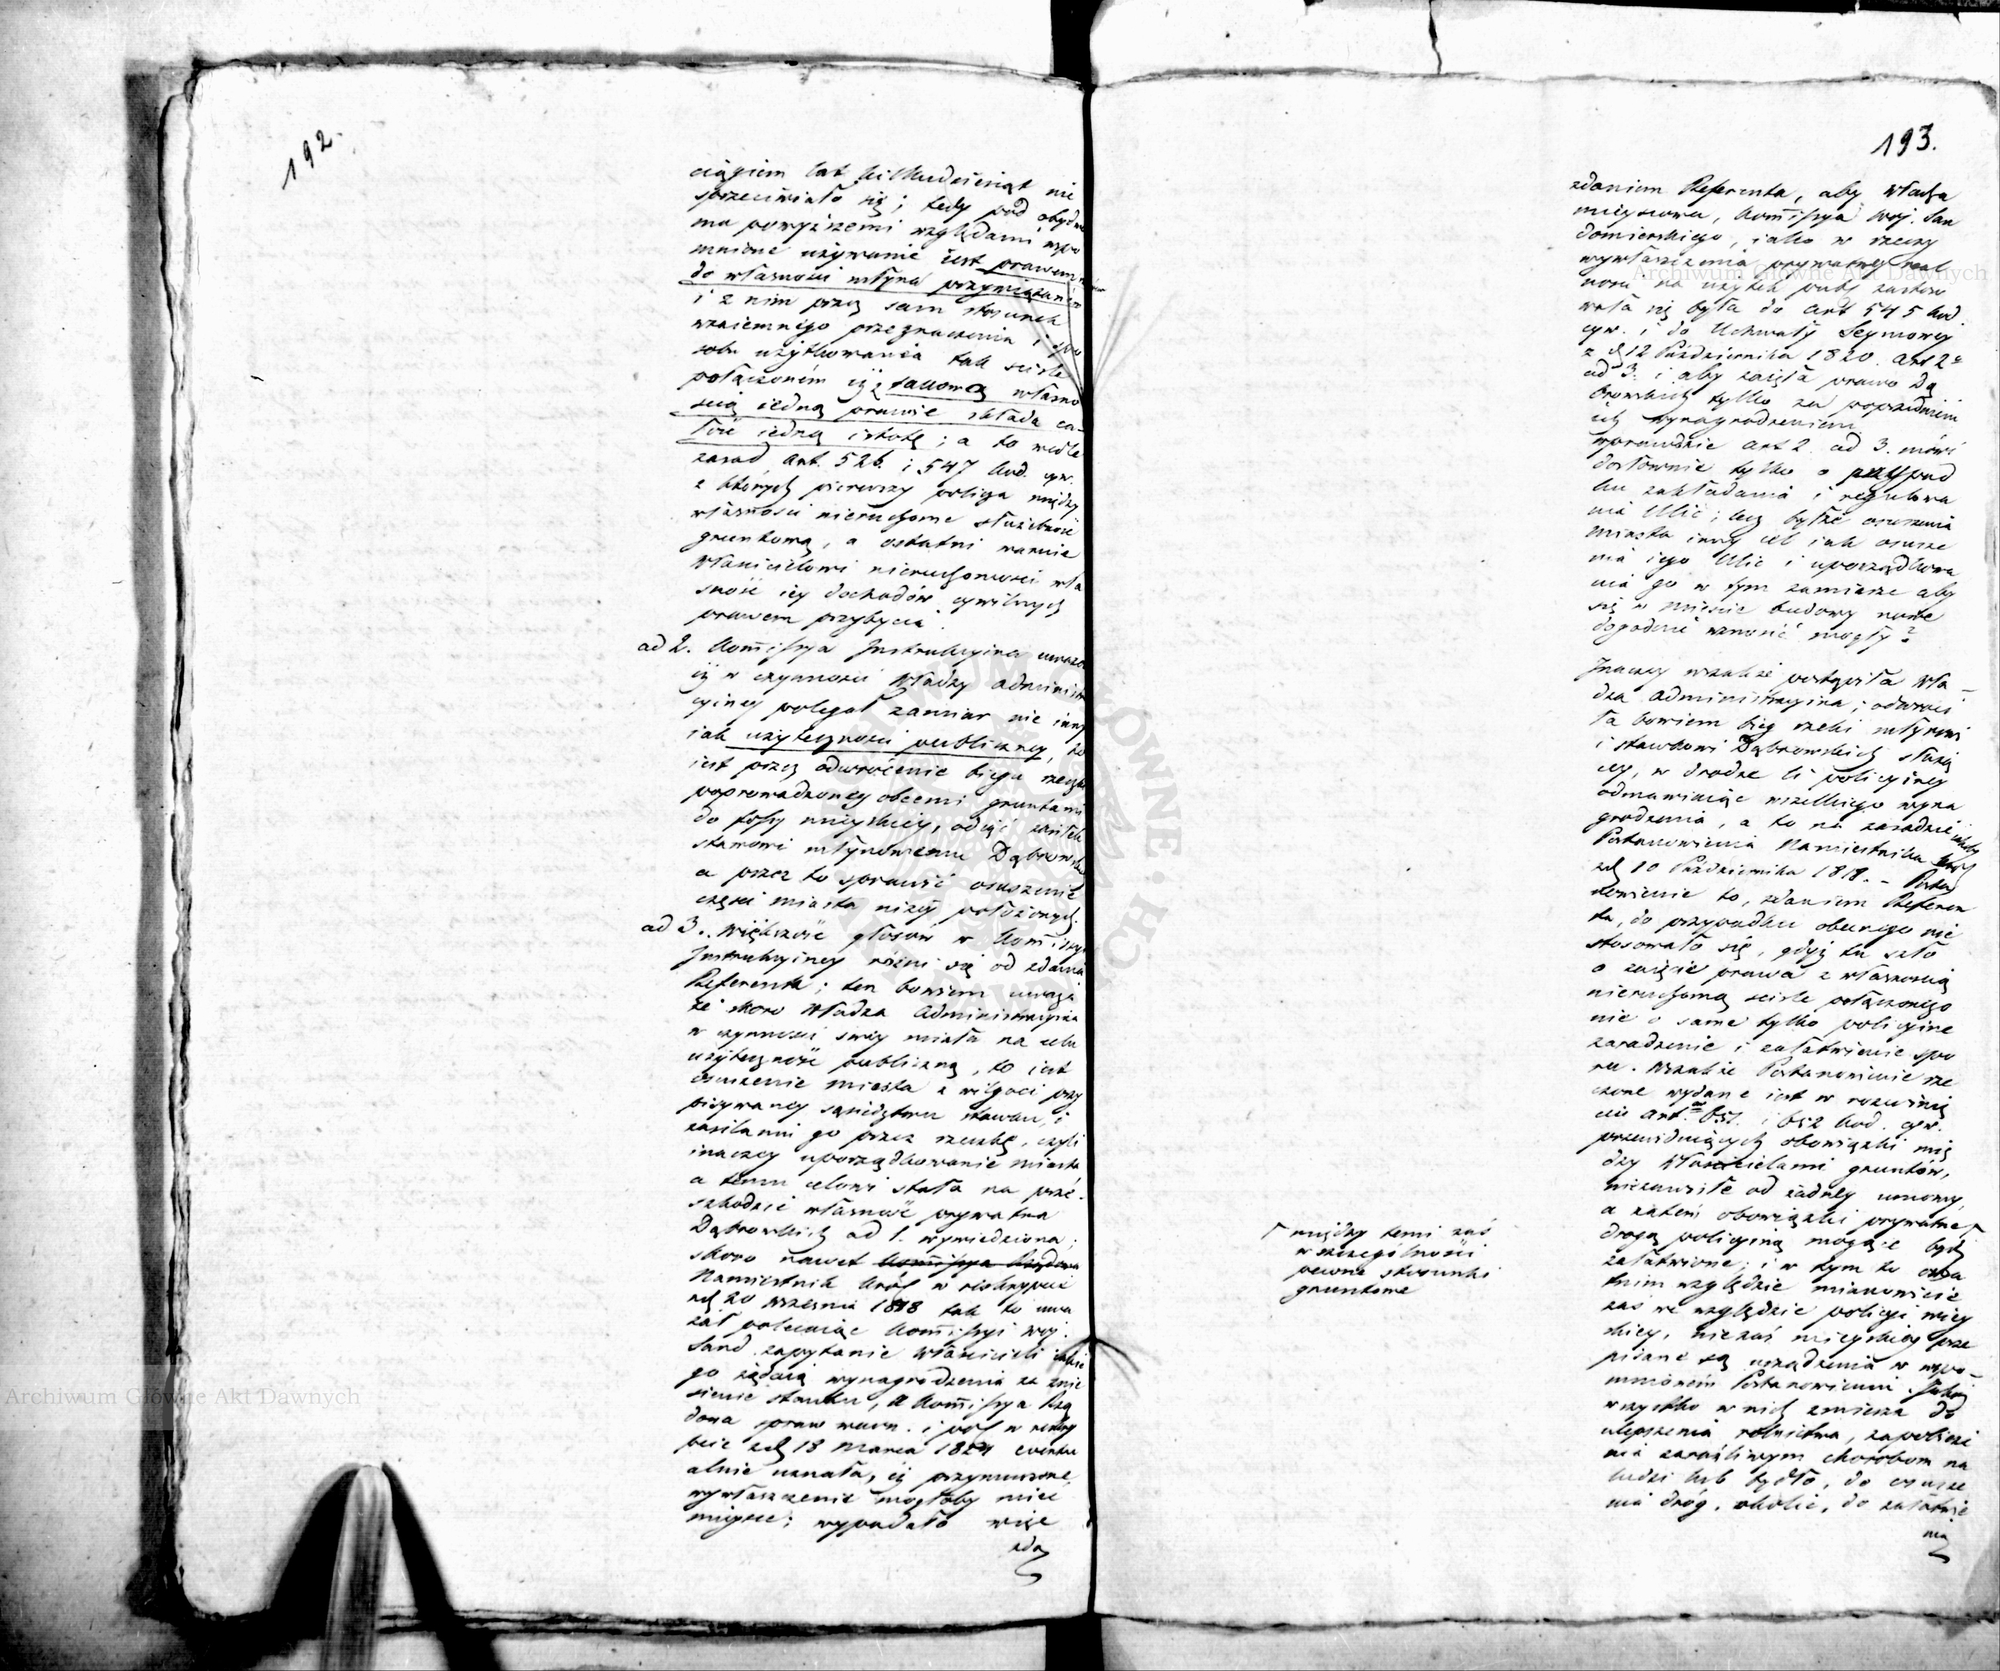 192.
ciągiem lat kilkudziesiąt nie
sprzeciwiało się; tedy pod obydwo
ma powyższemi względami wspo
mnione używanie iest prawem
do własności młyna przywiązanem
i z nim przez sam stosunek
wzaiemnego przeznaczenia i spo
sobu użytkowania tak ściśle
połączoném iż z takową własno
scią iedną prawie składa ca-
łość iedną istotę; a to wedle
zasad art. 526. i 547 kod. cyw.
z których pierwszy policza między
własności nieruchome służebność
gruntową, a ostatni
właścicielowi nieruchomości wła
sność iey dochodów cywilnych
prawem przybycia.
ad 2. Kommissya Instrukcyina uważa
iż w czynności Władzy administra
cyiney polegał zamiar nie inny
iak użyteczności publiczney, to
iest przez odwrócenie biegu rzeczki
poprowadzoney obcemi gruntami
do fossy mieyskiey, odiąć zasiłek
stawowi młynowemu Dąbrowskich
a przez to sprawić osuszenie
części miasta niżey położonych.
ad 3. Większość głosów w Kommissyi
Instrukcyiney różni się od zdania
Referenta; ten bowiem uważa
że skoro Władza administracyina
w czynności swey miała na celu
użyteczność publiczną, to iest
osuszenie miasta z wilgoci przy
pisywaney sąsiedztwu stawku, i
zasilaniu go przez rzeczkę, czyli
inaczey uporządkowanie miasta
a temu celowi stała na prze-
szkodzie własność prywatna
Dąbrowskich ad 1. wywiedziona;
skoro nawet Kommissya Rządowa
Namiestnik Król. w reskrypcie
z d. 20 Września 1818 tak to uwa
żał polecaiąc Kommissyi Woj.
Sand. zapytanie właścicieli iakie
go żądaią wynagrodzenia za znie
sienie stawku, a Kommissya Rzą
dowa spraw wewn. i pol. w reskry
pcie z d. 18 Marca 1824 ewentu
alnie uznała, iż przymuszone
wywłaszczenie mogłoby mieć
mieysce; wypadało więc
zda
193.
zdaniem Referenta, aby Władza
mieyscowa, Kommissya Woj. San
domierskiego, iako w rzeczy
wywłaszczenia prywatney real
ności na użytek publ. zastoso
wała się była do art. 545 kod.
cyw. i do Uchwały Seymowey
z d. 12 Października 1820. art. 2o
ad 3. i aby zaięła prawo Dą
browskich tylko za poprzedniem
ich wynagrodzeniem
wprawdzie art. 2. ad 3. mówi
dosłownie tylko o przypad
ku zakładania i regulowa
nia Ulic; lecz byłże osuszenia
miasta inny cel iak osusze
nia iego Ulic i uporządkowa
nia go w tym zamiarze aby
się w mieście budowy nowe
dogodnie wznosić mogły?
Inaczey wszakże postąpiła Wła-
dza Administracyina; odwróci
ła bowiem bieg rzeki młynowi
i stawkowi Dąbrowskich służą
cey, w drodze li policyiney
odmawiaiąc wszelkiego wyna
grodzenia, a to na zasadzie
Postanowienia Namiestnika Król.
z d. 10 Października 1818. - Posta
nowienie to, zdaniem Referen
ta, do przypadku obecnego nie
stosowało się, gdyż tu szło
o zaięcie prawa z własnością
nieruchomą ściśle połączonego
nie o same tylko policyine
zaradzenie i załatwienie spo
ru. Wszakże Postanowienie rze
czone wydane iest w rozwinię
ciu art. 651. i 652 kod. cyw.
przewiduiących obowiązki mię
dzy właścicielami gruntów,
niezawisłe od żadney umowy,
a zatem obowiązki prywatne
drogą policyiną mogące bydź
załatwione; i w tym to osta
tnim względzie mianowicie
zaś we względzie policyi wiey
skiey, nie zaś mieyskiey prze
pisane są urządzenia w wspo-
mnionem Postanowieniu.
wszystko w nich zmierza do
ulepszenia rolnictwa, zapobieże
nia zaraźliwym chorobom na
ludzi lub bydło, do osusze
nia dróg, okolic, do załatwie
nia
między temi zaś
w szczególności
pewne stosunki
gruntowe
Archiwum Główne Akt Dawnych
Archiwum Główne Akt Dawnych